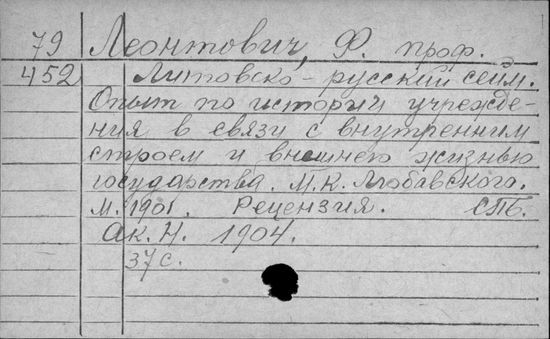 79 Леонтович, Ф. проф.
452 Литовско-русский сейм.
Опыт по истории учрежде-
ния в связи с внутренним
строем и внешнею жизнью
государства. М.К. Любавского.
М. 1901. Рецензия. СПБ.
Ак. Н. 1904.
37 с.